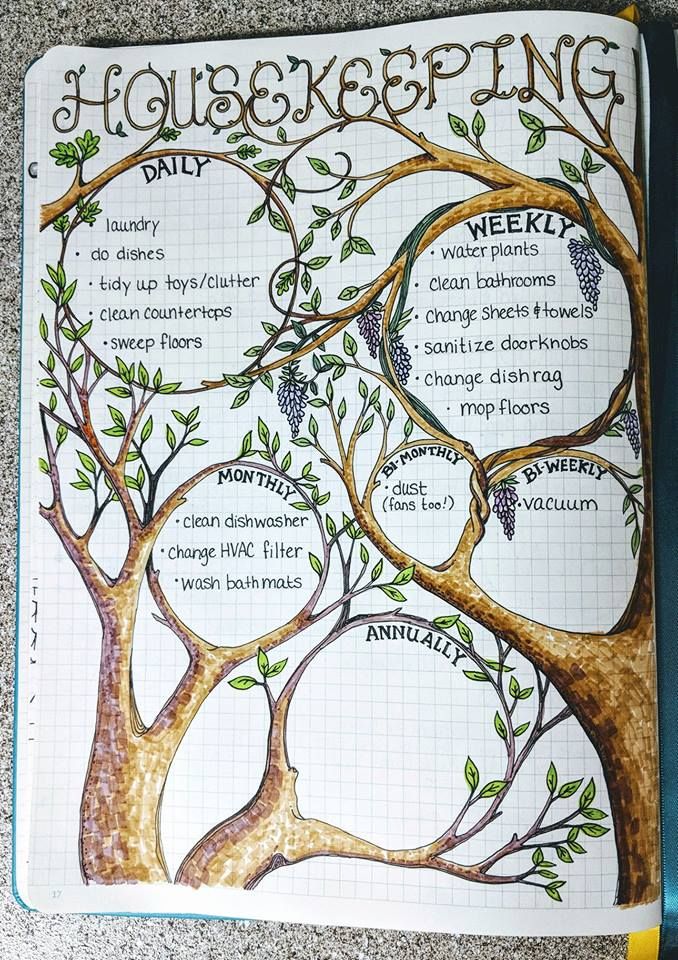 HOUSEKEEPING
DAILY
laundry
• do dishes
• tidy up toys/clutter
• clean countertops
• sweep floors
WEEKLY
• water plants
• clean bathrooms
• change sheets & towels
• sanitize doorknobs
• change dish rag
• mop floors
BI-MONTHLY
• dust
(fans too!)
BI-WEEKLY
• vacuum
MONTHLY
• clean dishwasher
• change HVAC filter
• wash bathmats
ANNUALLY
17